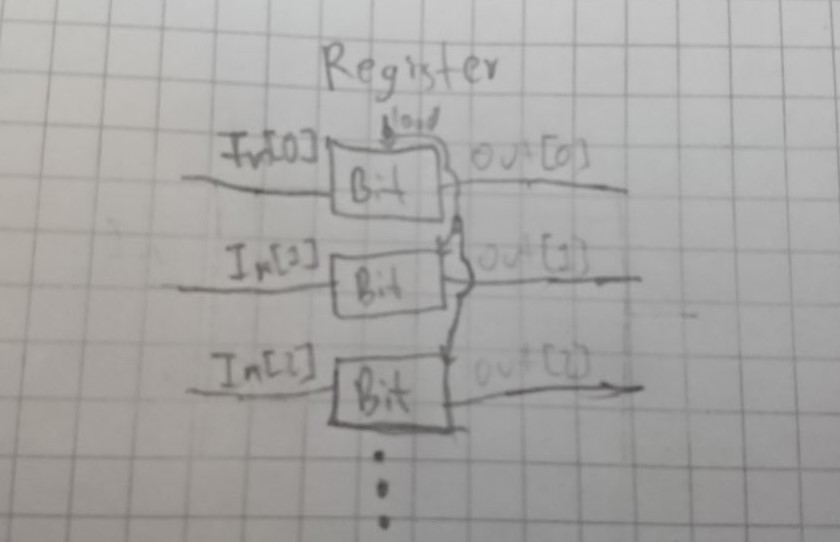 Register
load
In[0] Bit out[0]
In[1] Bit out[1]
In[2] Bit out[2]